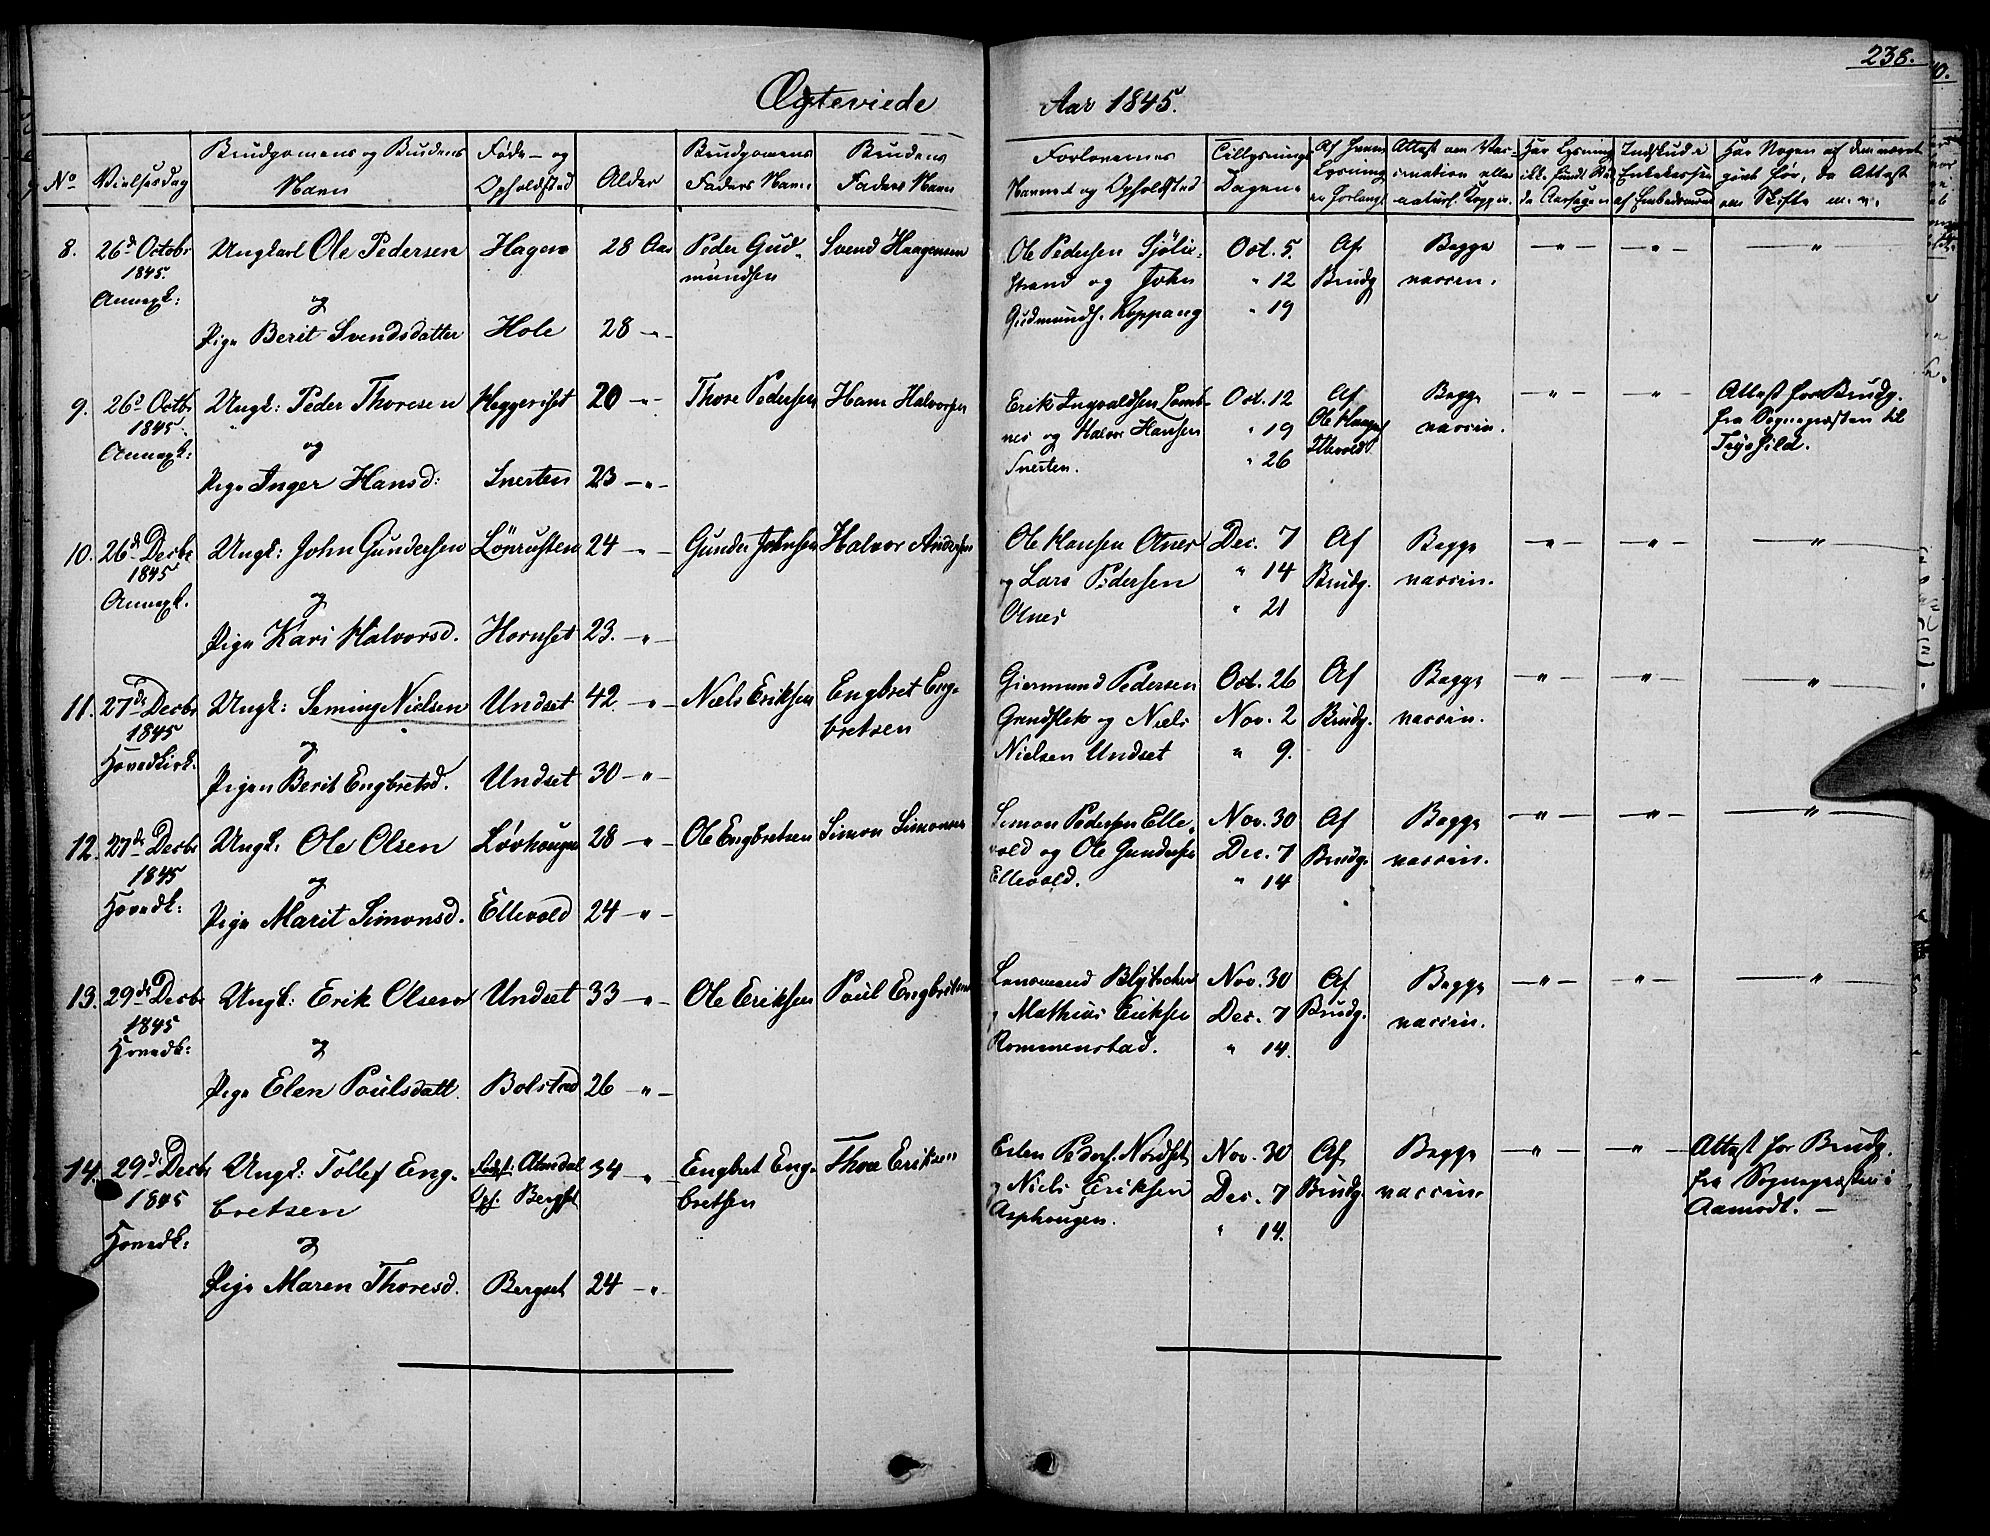 238.
Ægteviede
Aar 1845.
No
Vielsesdag
Brudgomens og Brudens
Navn
Føde- og
Opholdsted
Alder
Brudgomens
Faders Navn
Brudens
Faders Navn
Forlovernes
Navne og Opholdsted
Tillysnings
Dagene
Af hvem
Lysning
er forlangt
Attest om Vac-
cination eller
naturl. Kopper.
Har Lysning
ikke fundet Sted
da Aarsagen
Indskud i
Enkekassen
af Embedsmænd
Har Nogen af dem været
givt før, da Attest
om Skifte m. v.
8.
26d Octobr
1845.
Annexk:
Ungkarl Ole Pedersen
og
Pige Berit Svendsdatter
Hagen
Hole
28 Aar
28 -"-
Peder Gud-
mundsen
Svend Haagensen
Ole Pedersen Sjølie-
strand og John
Gudmunds. Koppang
Oct. 5.
" 12
" 19
Af
Brudg
Begge
vaccin.
-"-
-"-
"
9.
26d Octbr
1845.
Annexk:
Ungk: Peder Thoresen
og
Pige Inger Hansd:
Heggeriset
Snerten
20 -"-
23 -"-
Thore Pedersen
Hans Halvorsen
Erik Ingvaldsen Lomb-
nes og Halvor Hansen
Snerten.
Oct. 12
" 19
" 26
Af
Ole Haagens
Ellevold
Begge
vaccin.
-"-
-"-
Attest for Brudg.
fra Sognepræsten til
Trysild.
10.
26d Decbr
1845
Annexk.
Ungk: John Gundersen
og
Pige Kari Halvorsd.
Lönrusten
Hornset
24 -"-
23. -"-
Gunder Johnsen
Halvor Andersen
Ole Hansen Otnes
og Lars Pedersen
Otnes
Dec. 7
" 14
" 21
Af
Brudg.
Begge
vaccin.
-"-
-"-
"
11.
27de Decbr
1845
Hovedkirk.
Ungk: Seming Nielsen
og
Pigen Berit Engbretsd.
Undset
Undset
42 -"-
30 -"-
Niels Eriksen
Engbret Eng-
bretsen
Giermund Pedersen
Grindflek og Niels
Nielsen Undset
Oct. 26
Nov. 2
" 9.
Af
Brudg.
Begge
vaccin.
-"-
-"-
"
12.
27de Decbr
1845
Hovedk:
Ungk: Ole Olsen
og
Pige Marit Simonsd.
Løvhougen
Ellevold
28 -"-
24 -"-
Ole Engbretsen
Simon Simonsen
Simon Pedersen Elle-
vold og Ole Gundersen
Ellevold.
Nov. 30
Dec. 7
" 14
Af
Brudg.
Begge
vaccin.
-"-
-"-
"
13.
29de Decbr
1845
Hovedk:
Ungk: Erik Olsen
og
Pige Elen Poulsdatt.
Undset
Bolstad
33 -"-
26 -"-
Ole Eriksen
Poul Engbretsen
Lensmand
og Mathias Eriksen
Rommenstad.
Nov. 30
Dec. 7
" 14.
Af
Brudg.
Begge
vaccin.
-"-
-"-
"
14.
29de Decbr
1845
Hovedk:
Ungk: Tollef Eng-
bretsen
og
Pige Maren Thoresd.
Fødest: Almdal
Opf: Bergset
Bergset
34 -"-
24 -"-
Engbret Eng-
bretsen
Thore Eriksen
Esten Peders. Nordset
og Niels Eriksen
Asphougen.
Nov. 30
Dec. 7
" 14.
Af
Brudg.
Begge
vaccin.
-"-
-"-
Attest for Brudg.
fra Sognepræsten i
Aamodt. -